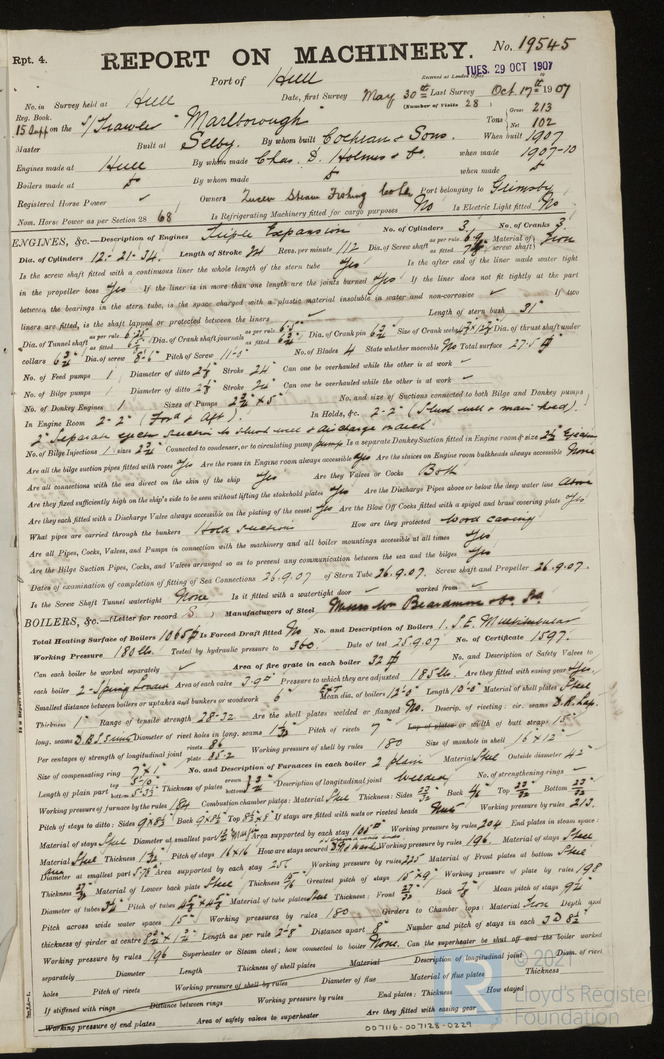 Rpt. 4.
REPORT ON MACHINERY.
No. 19545
Port of Hull
Received at London Office
TUES. 29 OCT 1907
No. in Survey held at Hull
Date, first Survey May 30th Last Survey Oct 17th 1907
Reg. Book.
(Number of Visits 28)
15 Supp on the S/Trawler "Marlborough"
Tons Gross 213
Net 102
Master Built at Selby. By whom built Cochrane & Sons. When built 1907
Engines made at Hull By whom made Chas. D. Holmes & Co. when made 1907-10
Boilers made at By whom made when made
Registered Horse Power Owners Steam Fishing Co Ld. Port belonging to Grimsby
Nom. Horse Power as per Section 28 68 Is Refrigerating Machinery fitted for cargo purposes No Is Electric Light fitted No
ENGINES, &c.—Description of Engines Triple Expansion No. of Cylinders 3 No. of Cranks 3
Dia. of Cylinders 12"-21"-34" Length of Stroke 24 Revs. per minute 112 Dia. of Screw shaft as per rule as fitted Material of screw shaft Iron
Is the screw shaft fitted with a continuous liner the whole length of the stern tube Yes Is the after end of the liner made water tight
in the propeller boss Yes If the liner is in more than one length are the joints burned Yes If the liner does not fit tightly at the part
between the bearings in the stern tube, is the space charged with a plastic material insoluble in water and non-corrosive If two
liners are fitted, is the shaft lapped or protected between the liners Length of stern bush 31"
Dia. of Tunnel shaft as per rule as fitted Dia. of Crank shaft journals as per rule as fitted Dia. of Crank pin 6¾" Size of Crank webs Dia. of thrust shaft under
collars 6¾" Dia. of screw 8'-6" Pitch of Screw 11'-0" No. of Blades 4 State whether moveable No Total surface 27.5
No. of Feed pumps 1 Diameter of ditto 2⅝" Stroke 24" Can one be overhauled while the other is at work
No. of Bilge pumps 1 Diameter of ditto 2⅝" Stroke 24" Can one be overhauled while the other is at work
No. of Donkey Engines 1 Sizes of Pumps No. and size of Suctions connected to both Bilge and Donkey pumps
In Engine Room 2-2" (Ford & Aft). In Holds, &c. 2-2" (Slush well & main hold).
2" Separate ejector suction to slush well & discharge on deck
No. of Bilge Injections 1 sizes Connected to condenser, or to circulating pump pump Is a separate Donkey Suction fitted in Engine room & size
Are all the bilge suction pipes fitted with roses Yes Are the roses in Engine room always accessible Yes Are the sluices on Engine room bulkheads always accessible None
Are all connections with the sea direct on the skin of the ship Yes Are they Valves or Cocks Both
Are they fixed sufficiently high on the ship's side to be seen without lifting the stokehold plates Yes Are the Discharge Pipes above or below the deep water line Above
Are they each fitted with a Discharge Valve always accessible on the plating of the vessel Yes Are the Blow Off Cocks fitted with a spigot and brass covering plate Yes
What pipes are carried through the bunkers Hold suctions How are they protected Wood casing
Are all Pipes, Cocks, Valves, and Pumps in connection with the machinery and all boiler mountings accessible at all times Yes
Are the Bilge Suction Pipes, Cocks, and Valves arranged so as to prevent any communication between the sea and the bilges Yes
Dates of examination of completion of fitting of Sea Connections 26.9.07. of Stern Tube 26.9.07. Screw shaft and Propeller 26.9.07.
Is the Screw Shaft Tunnel watertight None Is it fitted with a watertight door worked from
BOILERS, &c.—(Letter for record S) Manufacturers of Steel Messrs Wm Beardmore & Co. Ld
Total Heating Surface of Boilers 1065 Is Forced Draft fitted No No. and Description of Boilers 1. S.E. Multitubular
Working Pressure 180 lbs Tested by hydraulic pressure to 360. Date of test 25.9.07 No. of Certificate 1597.
Can each boiler be worked separately Area of fire grate in each boiler 32 No. and Description of Safety Valves to
each boiler 2-Spring Loaded Area of each valve Pressure to which they are adjusted 185 lbs. Are they fitted with easing gear Yes.
Smallest distance between boilers or uptakes and bunkers or woodwork 6" Mean dia. of boilers Length 10'-0" Material of shell plates Steel
Thickness 1" Range of tensile strength 28-32 Are the shell plates welded or flanged No. Descrip. of riveting: cir. seams D.R. Lap.
long. seams Diameter of rivet holes in long. seams Pitch of rivets 7" Lap of plates or width of butt straps 15"
Per centages of strength of longitudinal joint rivets 86 plate 85.2 Working pressure of shell by rules 180 Size of manhole in shell 16"x12"
Size of compensating ring 7"x1" No. and Description of Furnaces in each boiler 2 plain Material Steel Outside diameter 42"
Length of plain part top bottom Thickness of plates crown bottom Description of longitudinal joint Welded No. of strengthening rings
Working pressure of furnace by the rules 184 Combustion chamber plates: Material Steel Thickness: Sides Back Top Bottom
Pitch of stays to ditto: Sides Back Top If stays are fitted with nuts or riveted heads Nuts Working pressure by rules 213.
Material of stays Steel Diameter at smallest part Area supported by each stay Working pressure by rules 204 End plates in steam space:
Material Steel Thickness Pitch of stays 16"x16" How are stays secured Working pressure by rules 196. Material of stays Steel
Diameter at smallest part Area supported by each stay 256 Working pressure by rules 225 Material of Front plates at bottom Steel
Thickness Material of Lower back plate Steel Thickness Greatest pitch of stays Working pressure of plate by rules 198
Diameter of tubes Pitch of tubes Material of tube plates Steel Thickness: Front Back Mean pitch of stays
Pitch across wide water spaces 15" Working pressures by rules 180 Girders to Chamber tops: Material Iron Depth and
thickness of girder at centre Length as per rule 2'-8" Distance apart 8" Number and pitch of stays in each
Working pressure by rules 196 Superheater or Steam chest; how connected to boiler None. Can the superheater be shut off and the boiler worked
separately Diameter Length Thickness of shell plates Material Description of longitudinal joint Diam. of rivet
holes Pitch of rivets Working pressure of shell by rules Diameter of flue Material of flue plates Thickness
If stiffened with rings Distance between rings Working pressure by rules End plates: Thickness How stayed
Working pressure of end plates Area of safety valves to superheater Are they fitted with easing gear
© 2021
Lloyd's Register
Foundation
007116-007128-0229